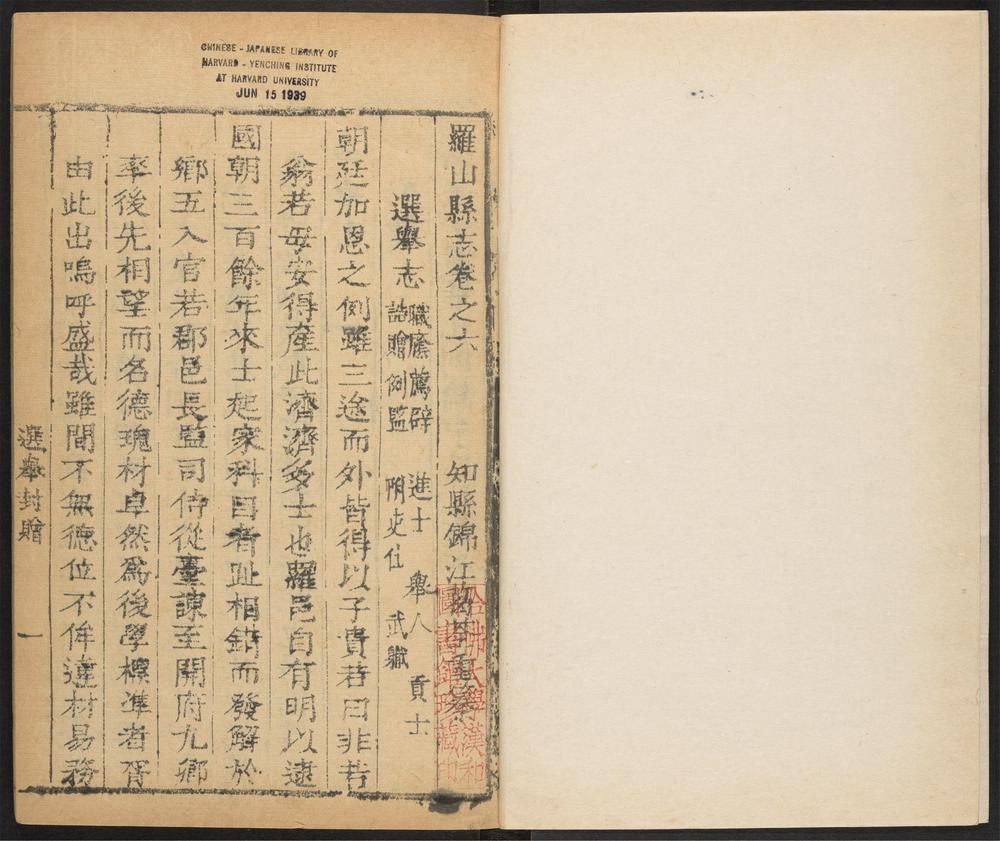 CHINESE - JAPANESE LIBRARY OF
HARVARD - YENCHING INSTITUTE
AT HARVARD UNIVERSITY
JUN 15 1939
羅山縣志卷之六 知縣錦江
哈佛大學漢和
圖書館珍藏印
選舉志 職廕薦辟 進士 舉人 貢士
誥贈例監 附吏仕 武職
朝廷加恩之例雖三途而外皆得以子貴若曰非若
翁若母安得產此濟濟多士也羅邑自有明以逮
國朝三百餘年來士起家科目者趾相錯而發解於
鄉五入官若郡邑長監司侍從臺諫至開府九卿
率後先相望而名德瑰材卓然爲後學標準者胥
由此出嗚呼盛哉雖間不無德位不侔達材易務
選舉封贈 一